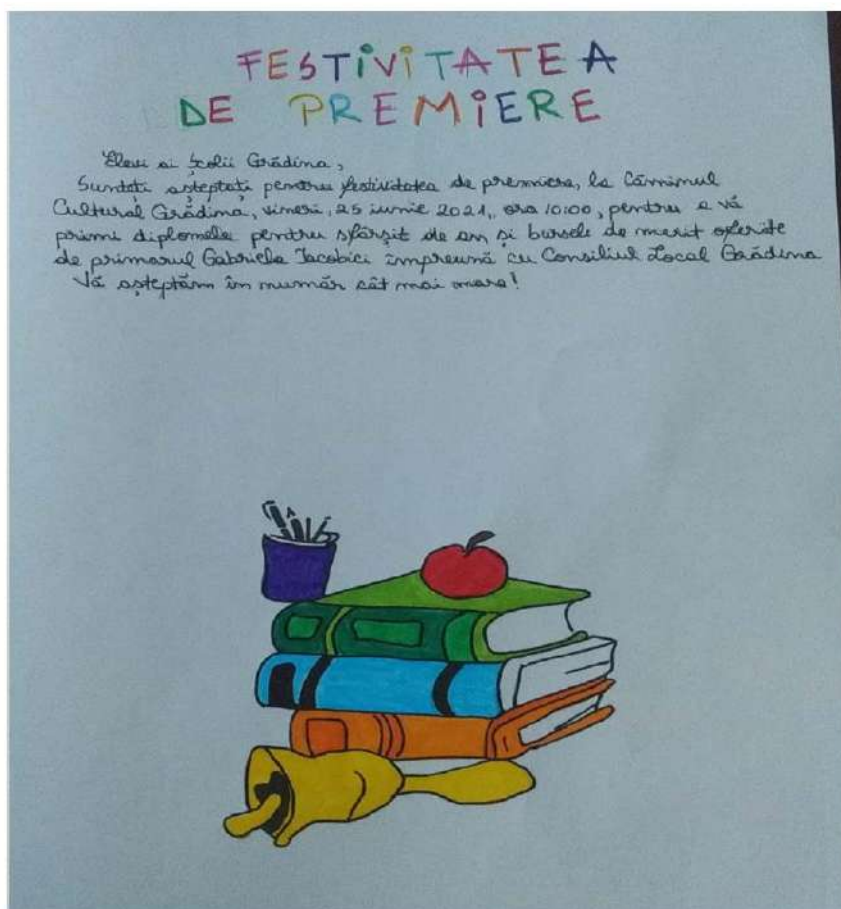 FESTIVITATEA
DE PREMIERE
Elevi ai Școlii Grădina,
Sunteți așteptați pentru festivitatea de premiere, la Căminul
Cultural Grădina, vineri, 25 iunie 2021, ora 10:00, pentru a vă
primi diplomele pentru sfârșit de an și bursele de merit oferite
de primarul Gabriela Iacobici împreună cu Consiliul Local Grădina
Vă așteptăm în număr cât mai mare!